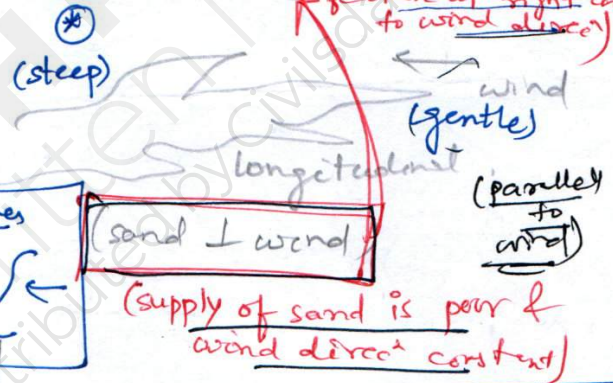 right
to wind direcⁿ)
(steep)
wind
(gentle)
longitudinal
(parallel
to
wind)
(sand ⊥ wind)
(supply of sand is poor &
wind direcⁿ constant)